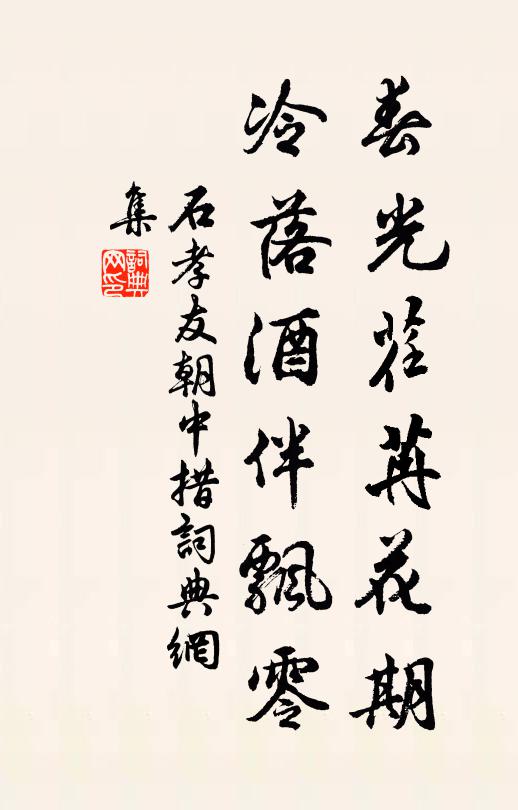 春光荏苒花期
冷落酒伴飄零
石孝友朝中措詞典網
集
詞典网印